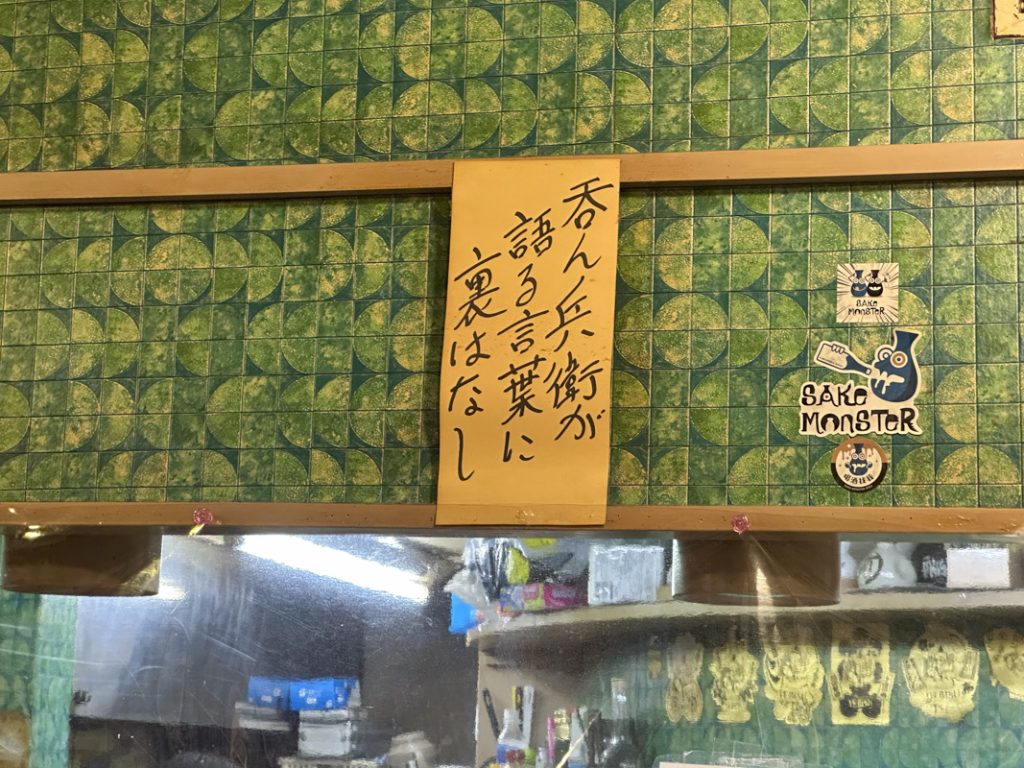 呑ん兵衛が
語る言葉に
裏はなし
SAKe
MONSTeR
SAKe
MONSTeR